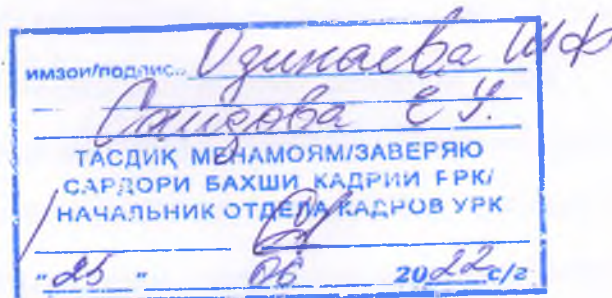 имзои/подпис.. Одинаева Ш Ф
Саидова Е У.
ТАСДИҚ МЕНАМОЯМ/ЗАВЕРЯЮ
САРДОРИ БАХШИ КАДРИИ РРК/
НАЧАЛЬНИК ОТДЕЛА КАДРОВ УРК
"25" 06 2022 с/г